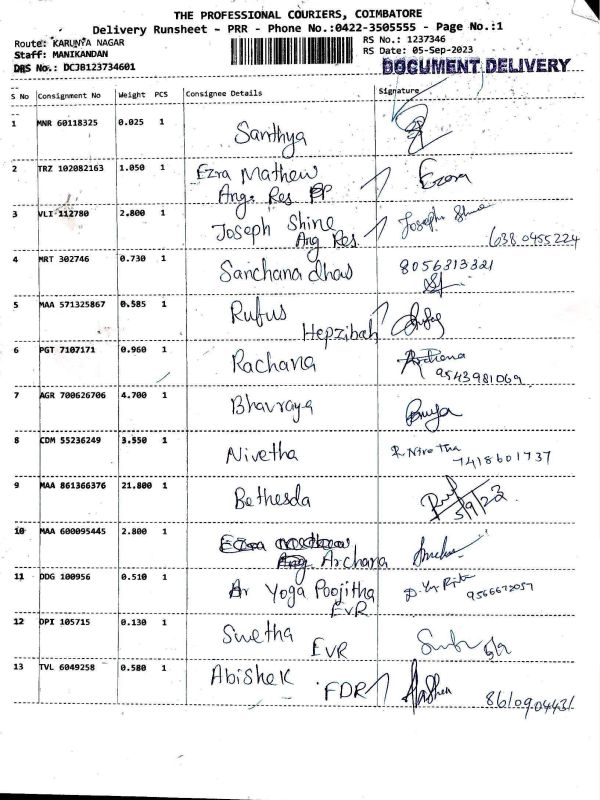 THE PROFESSIONAL COURIERS, COIMBATORE
Delivery Runsheet - PRR - Phone No.:0422-3505555 - Page No.:1
Route: KARUNYA NAGAR RS No.: 1237346
Staff: MANIKANDAN RS Date: 05-Sep-2023
DRS No.: DCJB123734601 DOCUMENT DELIVERY
S No Consignment No Weight PCS Consignee Details Signature
1 MNR 60118325 0.025 1 Santhya
2 TRZ 102082163 1.050 1 Ezra Mathew Ezra
Ang. Res
3 VLI 112780 2.800 1 Joseph Shine Joseph Shine
Ang Res 638 0955224
4 MRT 302746 0.730 1 Sanchana dhas 8056313321
5 MAA 571325867 0.585 1 Rufus
Hepzibah
6 PGT 7107171 0.960 1 Rachana Archana
9543981069
7 AGR 700626706 4.700 1 Bhavraya
8 CDM 55236249 3.550 1 Nivetha
7418601737
9 MAA 861366376 21.800 1 Bethesda
5/9/23
10 MAA 600095445 2.800 1 Ezra
Ang Archana
11 DDG 100956 0.510 1 Ar Yoga Poojitha
EVR 9566672057
12 DPI 105715 0.130 1 Swetha
EVR 5/9
13 TVL 6049258 0.580 1 Abishek
FDR 8610904431